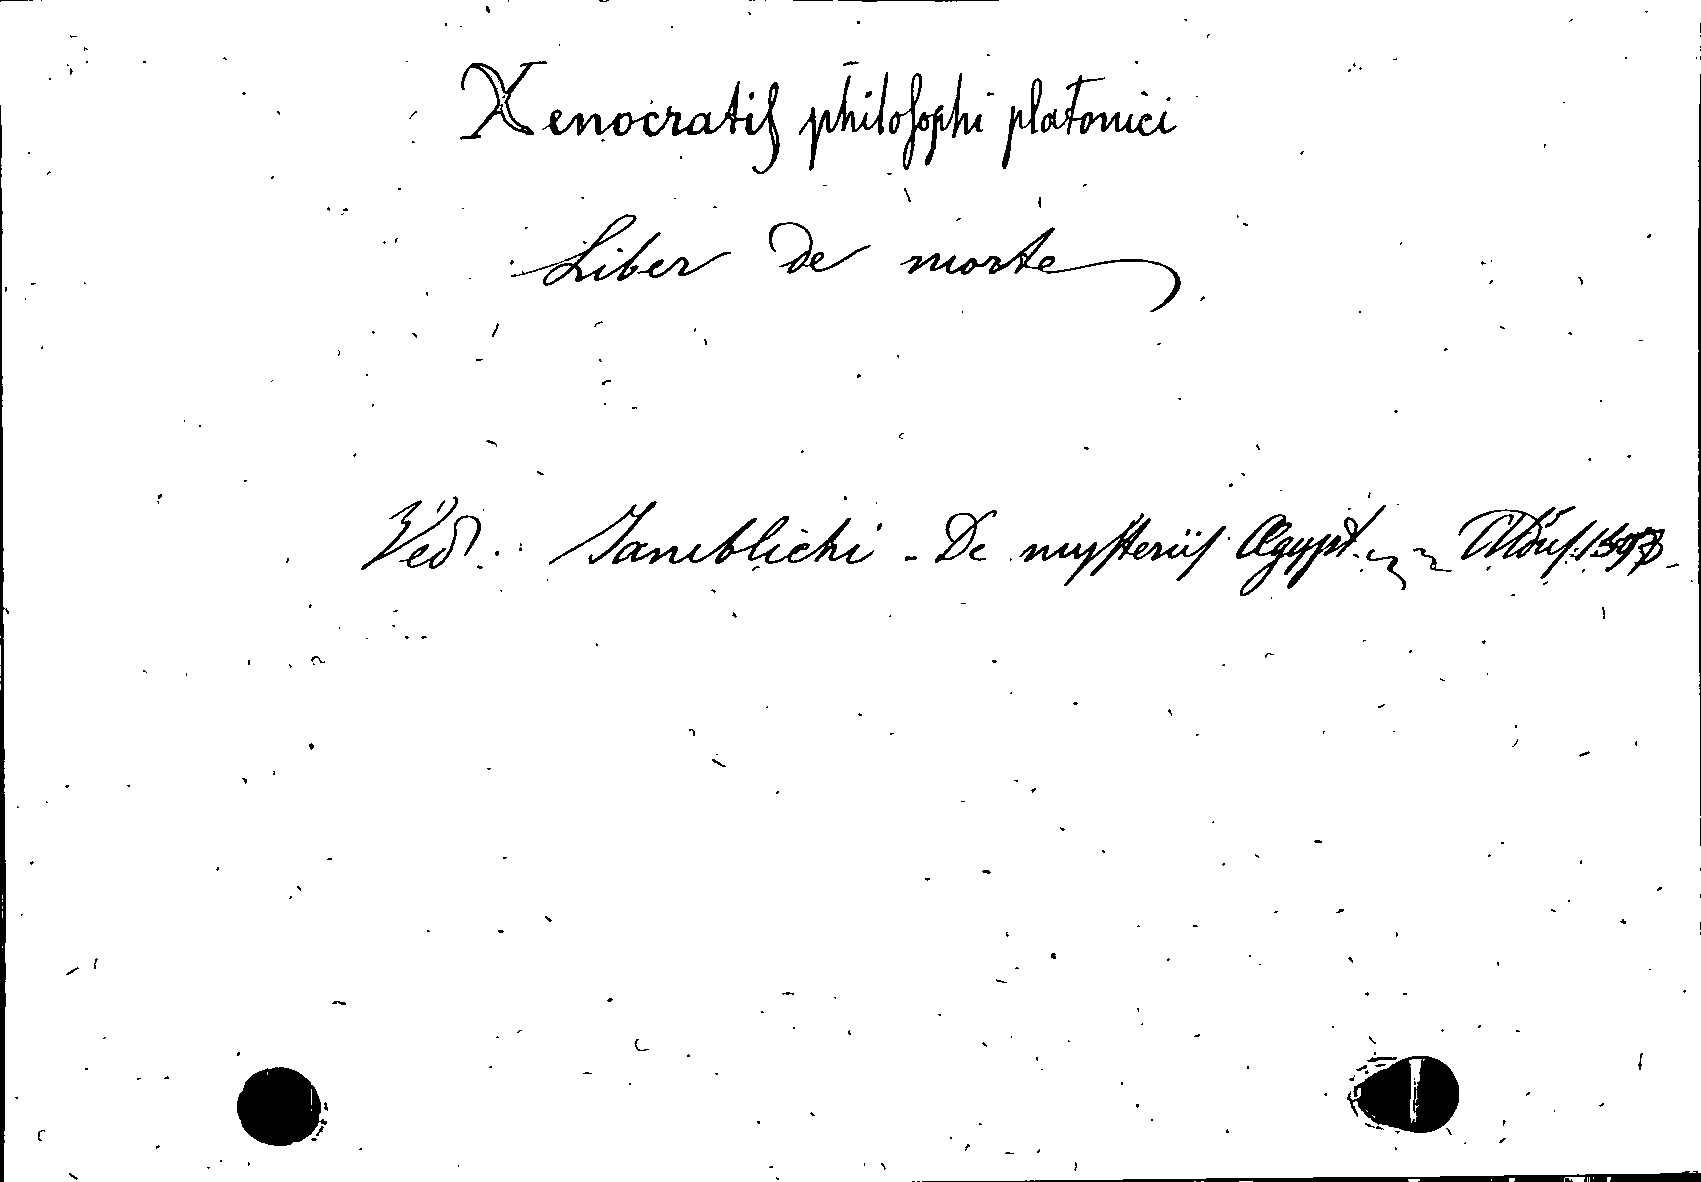 Xenocratis philosophi platonici
Liber de morte
Ved. Iamblichi - De mysteriis Ægypt.